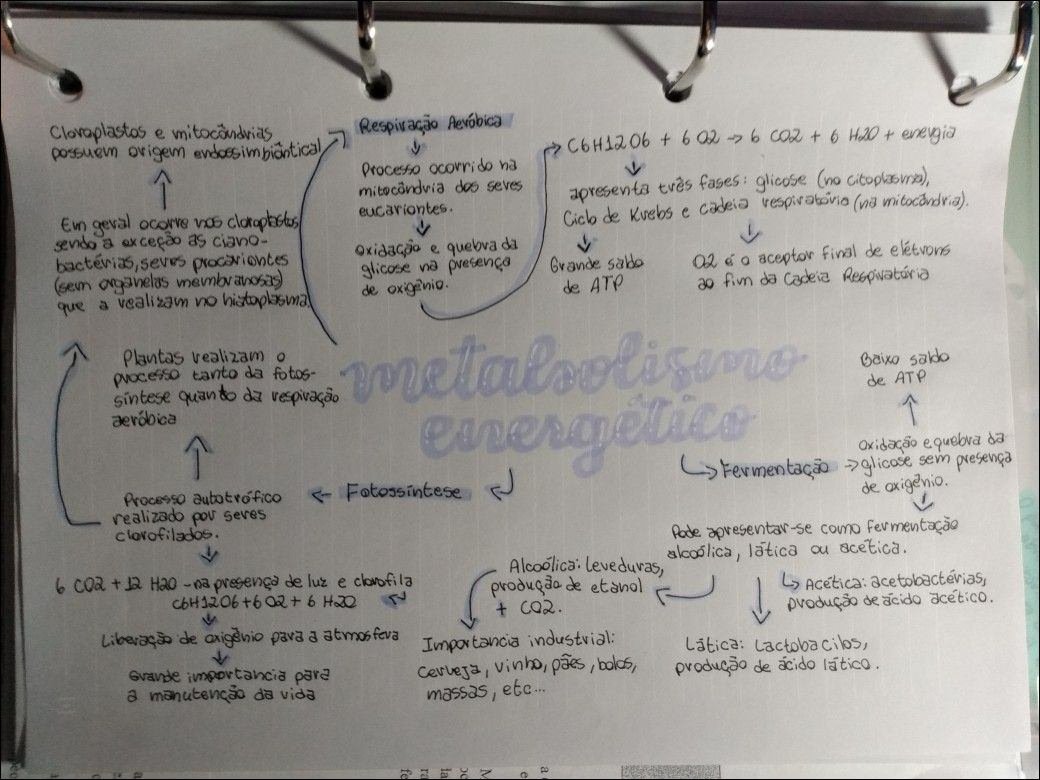 Cloroplastos e mitocôndrias
possuem origem endossimbióntica!
Em geral ocorre nos cloroplastos
sendo a exceção as ciano-
bactérias, seres procariontes
(sem organelas membranosas)
que a realizam no histoplasma
Respiração Aeróbica
Processo ocorrido na
mitocôndria dos seres
eucariontes.
Oxidação e quebra da
glicose na presença
de oxigênio.
C6H12O6 + 6 O2 → 6 CO2 + 6 H2O + energia
apresenta três fases: glicose (no citoplasma),
Ciclo de Krebs e cadeia respiratório (na mitocôndria).
Grande saldo
de ATP
O2 é o aceptor final de elétrons
ao fim da Cadeia Respiratória
metabolismo
energético
Plantas realizam o
processo tanto da fotos-
síntese quanto da respiração
aeróbica
Fotossíntese
Processo autotrófico
realizado por seres
clorofilados.
6 CO2 + 12 H2O - na presença de luz e clorofila
C6H12O6 + 6 O2 + 6 H2O
Liberação de oxigênio para a atmosfera
Grande importancia para
a manutenção da vida
Fermentação
Oxidação e quebra da
glicose sem presença
de oxigênio.
Baixo saldo
de ATP
Pode apresentar-se como fermentação
alcoólica, lática ou acética.
Alcoólica: leveduras,
produção de etanol
+ CO2.
Importancia industrial:
cerveja, vinho, pães, bolos,
massas, etc...
Lática: Lactobacilos,
produção de ácido lático.
Acética: acetobactérias,
produção de ácido acético.